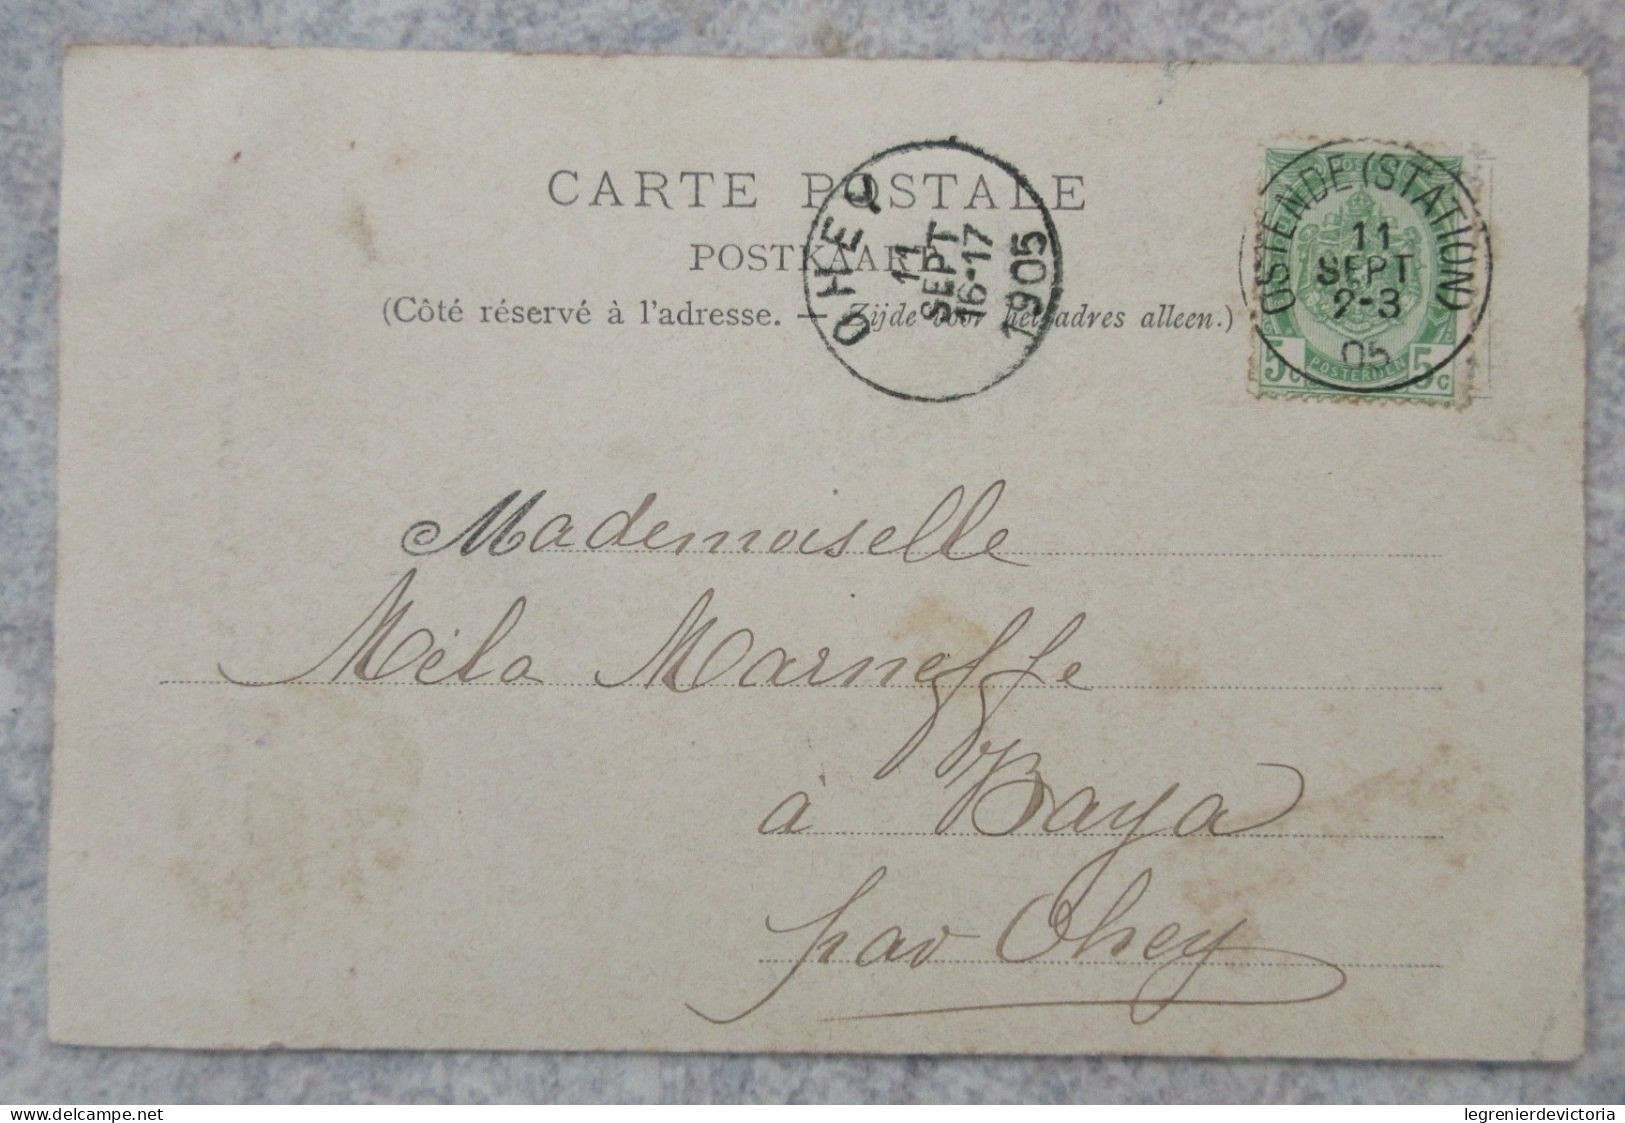 CARTE POSTALE
POSTKAART
(Côté réservé à l'adresse. — Zijde voor het adres alleen.)
OHEY
11
SEPT
16-17
1905
OSTENDE (STATION)
11
SEPT
2-3
05
POSTERIJEN
5c 5c
Mademoiselle
Méla Marneffe
à Baya
par Ohey
delcampe.net
legrenierdevictoria